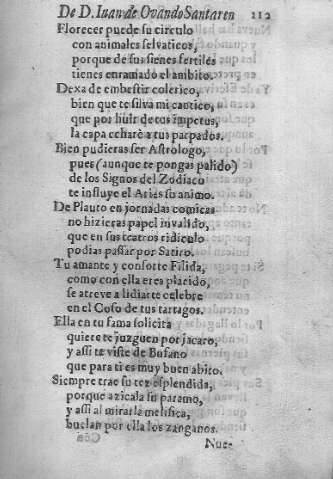 De D. Iuan de Ovando Santaren 212
Florecer puede su circulo
con animales selvaticos,
porque de sus sienes fertiles
tienes enramado el ambito.
Dexa de embestir colerico,
bien que te silva mi cantico,
que por huir de tus impetus,
la capa echarè a tus parpados.
Bien pudieras ser Astrologo,
pues (aunque te pongas palido)
de los Signos del Zodiaco
te influye el Aries su animo.
De Plauto en jornadas comicas
no hizieras papel invalido,
que en sus teatros ridiculo
podias passar por Satiro.
Tu amante y consorte Filida,
como con ella eres placido,
se atreve a lidiarte celebre
en el Coso de tus tartagos.
Ella en tu fama solicita
quiere te juzguen por jacaro,
y assi te viste de Bufano
que para ti es muy buen abito.
Siempre trae su tez esplendida,
porque azicala su paramo,
y assi al mirarla melifica,
buelan por ella los zanganos.
Nue-